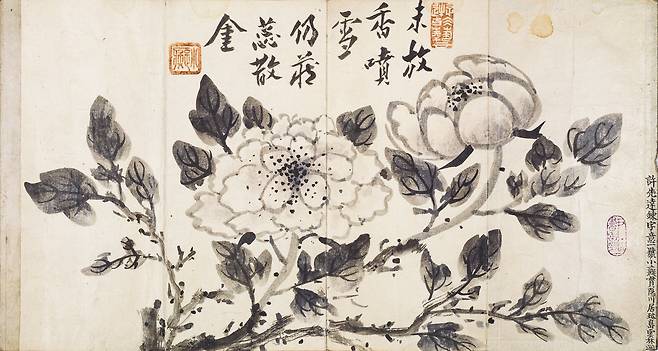 未放
香噴
雪
仍藏
蕊散
金
許先達鍊字號小癡貫陽川居珍島雲林